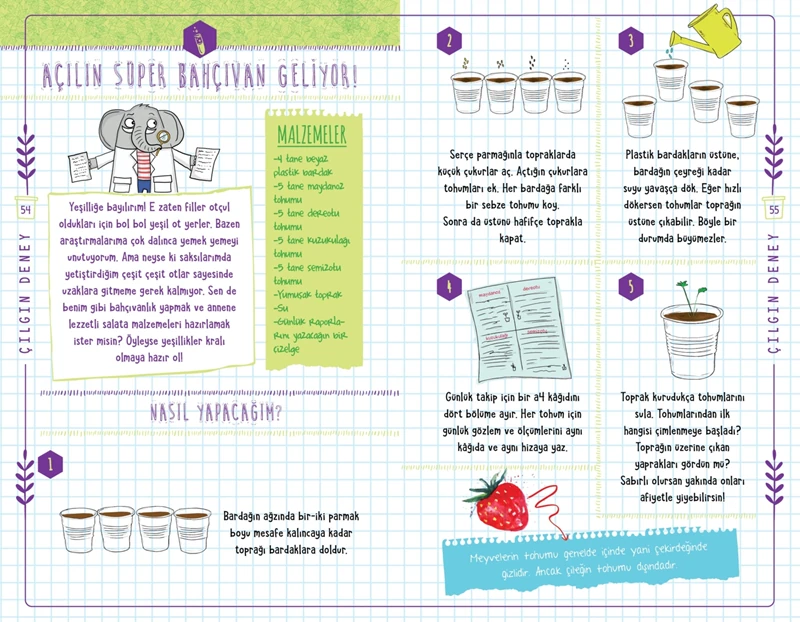 AÇILIN SÜPER BAHÇIVAN GELİYOR!
Yeşilliğe bayılırım! E zaten filler otçul
oldukları için bol bol yeşil ot yerler. Bazen
araştırmalarıma çok dalınca yemek yemeyi
unutuyorum. Ama neyse ki saksılarımda
yetiştirdiğim çeşit çeşit otlar sayesinde
uzaklara gitmeme gerek kalmıyor. Sen de
benim gibi bahçıvanlık yapmak ve annene
lezzetli salata malzemeleri hazırlamak
ister misin? Öyleyse yeşillikler kralı
olmaya hazır ol!
MALZEMELER
-4 tane beyaz
plastik bardak
-5 tane maydanoz
tohumu
-5 tane dereotu
tohumu
-5 tane kuzukulağı
tohumu
-5 tane semizotu
tohumu
-Yumuşak toprak
-Su
-Günlük raporla-
rını yazacağın bir
çizelge
54
ÇILGIN DENEY
NASIL YAPACAĞIM?
1
Bardağın ağzında bir-iki parmak
boyu mesafe kalıncaya kadar
toprağı bardaklara doldur.
2
Serçe parmağınla topraklarda
küçük çukurlar aç. Açtığın çukurlara
tohumları ek. Her bardağa farklı
bir sebze tohumu koy.
Sonra da üstünü hafifçe toprakla
kapat.
3
Plastik bardakların üstüne,
bardağın çeyreği kadar
suyu yavaşça dök. Eğer hızlı
dökersen tohumlar toprağın
üstüne çıkabilir. Böyle bir
durumda büyümezler.
4
maydanoz
dereotu
kuzukulağı
semizotu
Günlük takip için bir a4 kâğıdını
dört bölüme ayır. Her tohum için
günlük gözlem ve ölçümlerini aynı
kâğıda ve aynı hizaya yaz.
5
Toprak kurudukça tohumlarını
sula. Tohumlarından ilk
hangisi çimlenmeye başladı?
Toprağın üzerine çıkan
yaprakları gördün mü?
Sabırlı olursan yakında onları
afiyetle yiyebilirsin!
Meyvelerin tohumu genelde içinde yani çekirdeğinde
gizlidir. Ancak çileğin tohumu dışındadır.
55
ÇILGIN DENEY